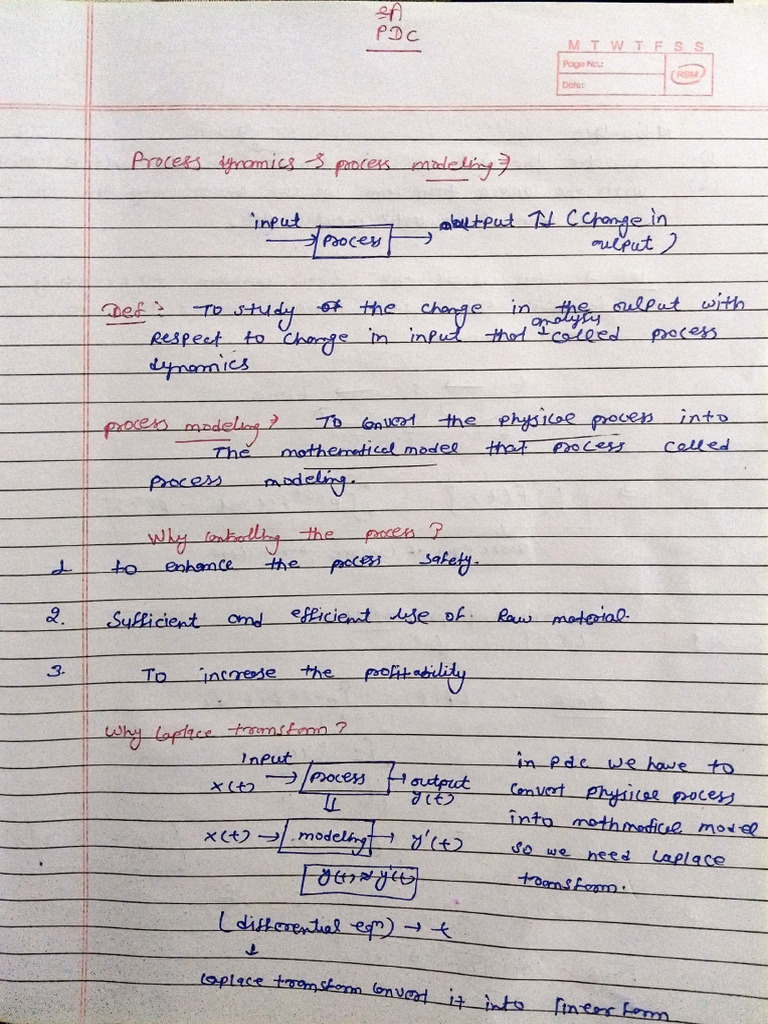 PDC
M T W T F S S
Page No.:
RSM
Date:
Process dynamics → process modeling →
input → process → output ↑↓ (Change in output)
Def : To study the change in the output with
Respect to change in input that analysis called process
dynamics
process modeling → To convert the physical process into
The mathematical model that process called
process modeling.
Why controlling the process ?
1. to enhance the process safety.
2. Sufficient and efficient use of Raw material.
3. To increase the profitability
Why Laplace transform ?
input
x(t) → process → output y(t)
⇓
x(t) → modeling → y'(t)
y(t) ≈ y'(t)
in pdc we have to
convert physical process
into mathmatical model
so we need Laplace
transform.
(differential eqn) → t
↓
Laplace transform convert it into linear form